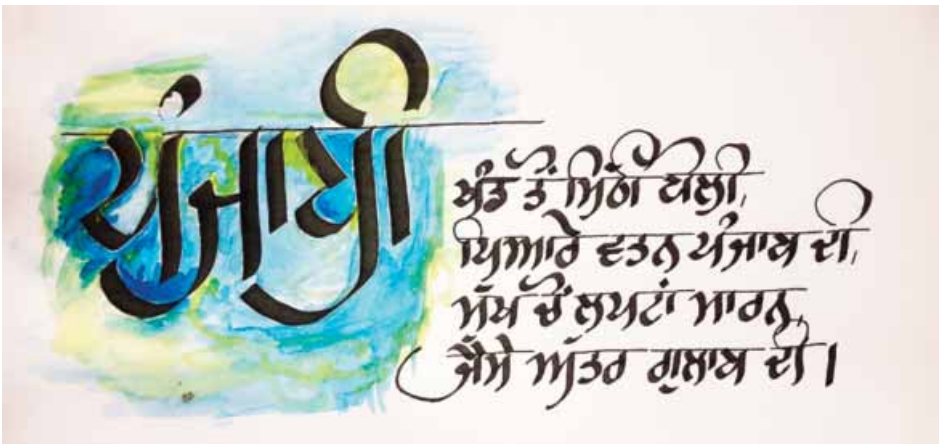 ਪੰਜਾਬੀ
ਖੰਡ ਤੋਂ ਮਿਠੀ ਬੋਲੀ,
ਪਿਆਰੇ ਵਤਨ ਪੰਜਾਬ ਦੀ,
ਮੁੱਖ ਚੋਂ ਲਪਟਾਂ ਮਾਰਨ,
ਜੈਸੇ ਅੱਤਰ ਗੁਲਾਬ ਦੀ ।